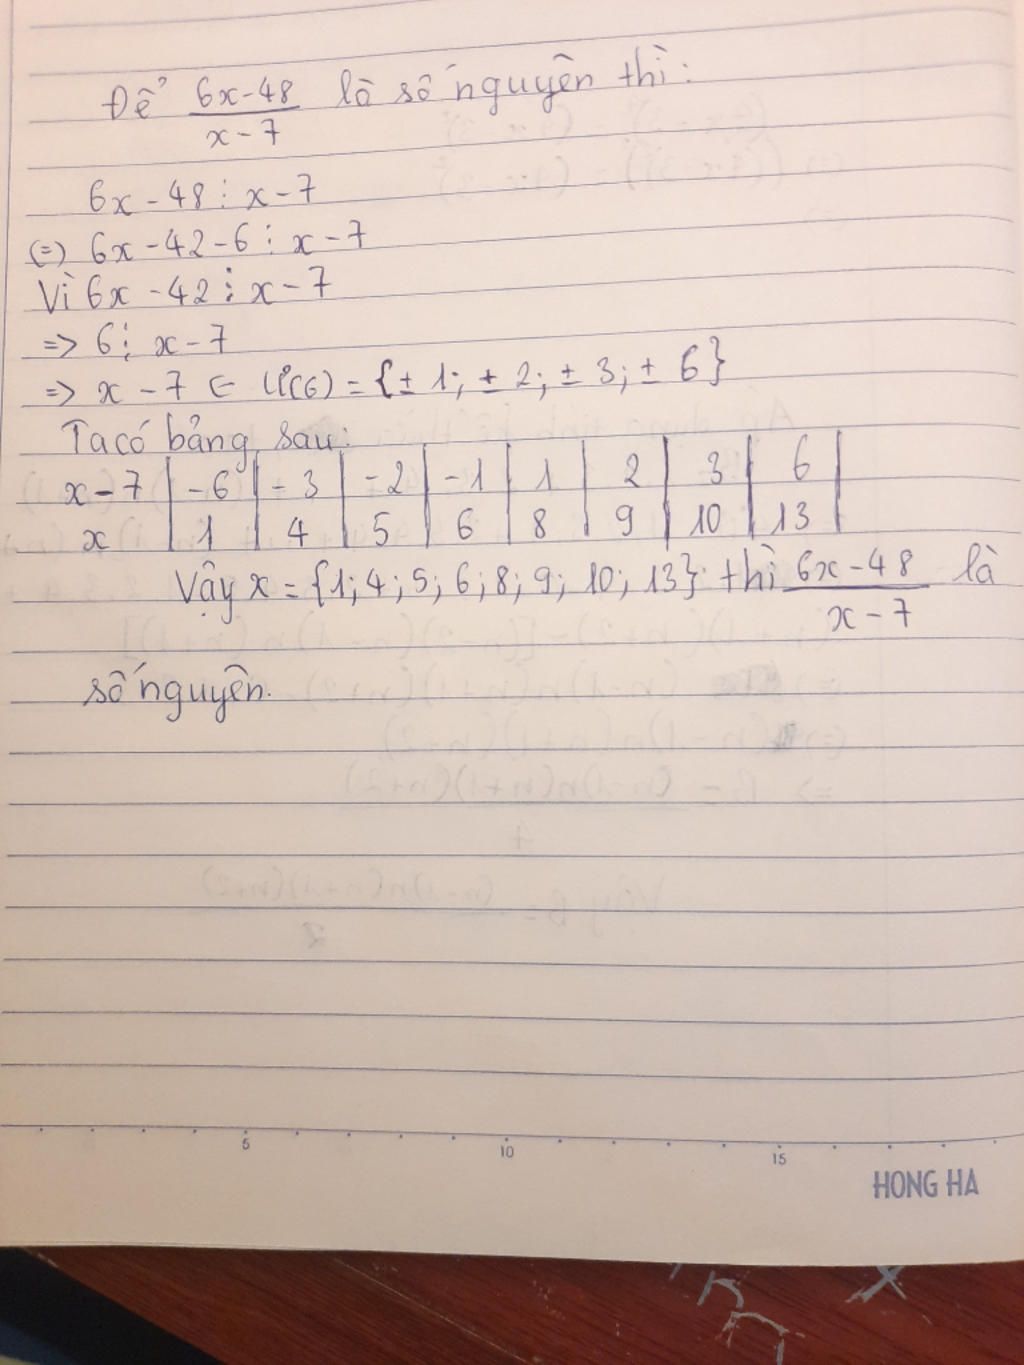 Để 6x-48/x-7 là số nguyên thì:
6x - 48 ⋮ x - 7
(=) 6x - 42 - 6 ⋮ x - 7
Vì 6x - 42 ⋮ x - 7
=> 6 ⋮ x - 7
=> x - 7 ∈ Ư(6) = {± 1; ± 2; ± 3; ± 6}
Ta có bảng sau:
x - 7 | -6 | -3 | -2 | -1 | 1 | 2 | 3 | 6 |
x | 1 | 4 | 5 | 6 | 8 | 9 | 10 | 13 |
Vậy x = {1; 4; 5; 6; 8; 9; 10; 13} thì 6x-48/x-7 là
số nguyên.
5 10 15
HONG HA